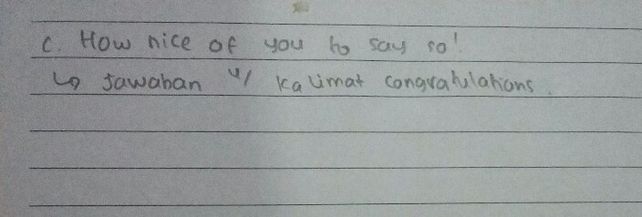 C. How nice of you to say so!
↳ Jawaban u/ kalimat congratulations.